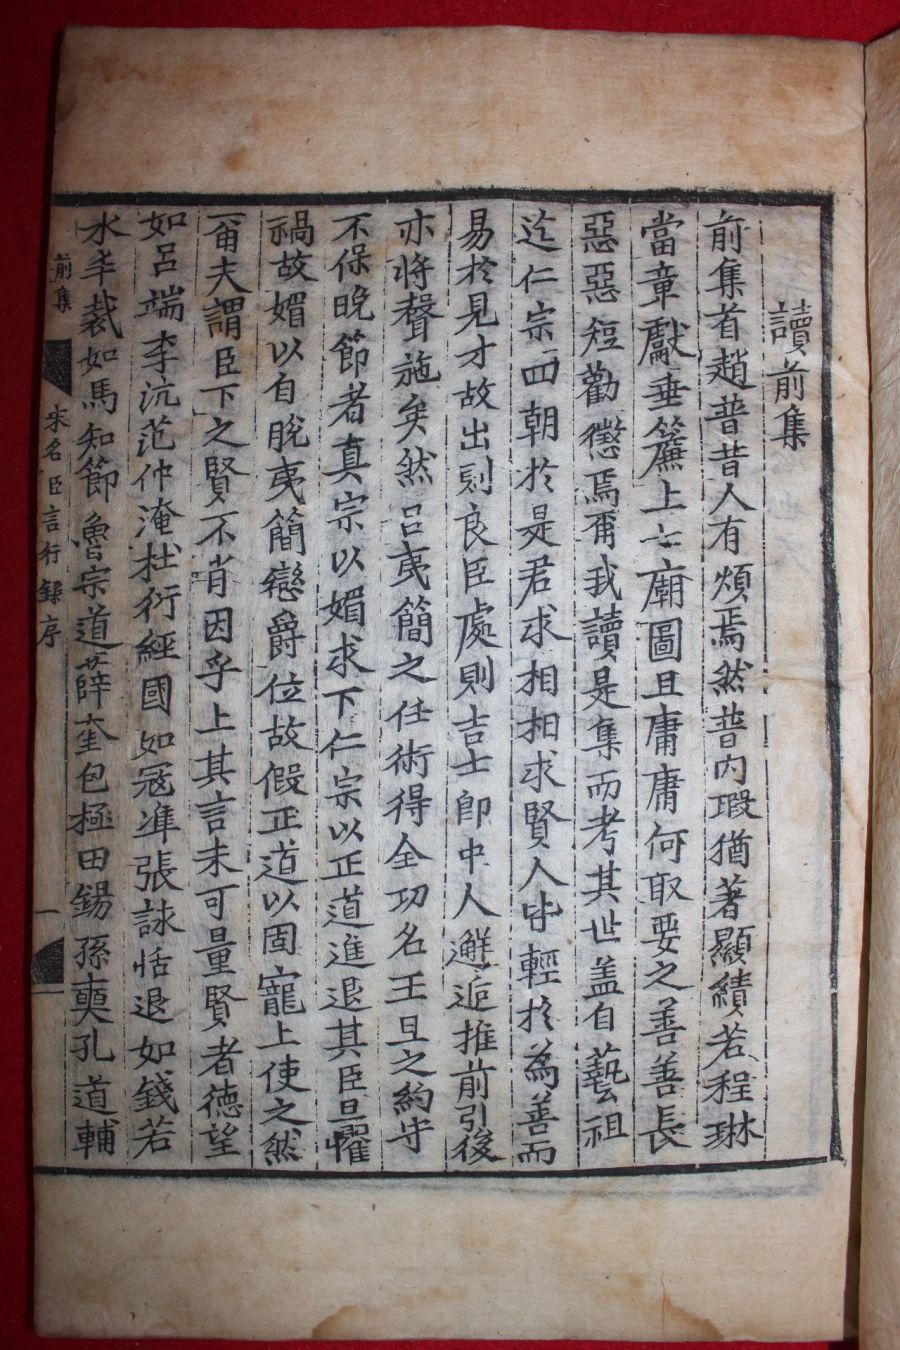 讀前集
前集首趙普昔人有煩焉然普内瑕猶著顯績若程琳
當章獻垂簾上七廟圖且庸庸何取要之善善長
惡惡短勸懲焉爾我讀是集而考其世盖自藝祖
迄仁宗四朝於是君求相相求賢人皆輕於為善而
易於見才故出則良臣處則吉士即中人邂逅推前引後
亦將聲施矣然呂夷簡之任術得全功名王旦之約守
不保晚節者真宗以媚求下仁宗以正道進退其臣旦懼
禍故媚以自脫夷簡戀爵位故假正道以固寵上使之然
甯夫謂臣下之賢不肖因乎上其言未可量賢者德望
如呂端李沆范仲淹杜衍經國如寇準張詠恬退如錢若
水羊裁如馬知節魯宗道薛奎包極田錫孫奭孔道輔
前集
宋名臣言行錄序
一